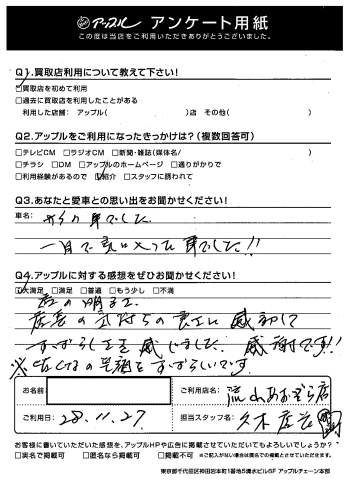 アップル アンケート用紙
この度は当店をご利用いただきありがとうございました。
Q1.買取店利用について教えて下さい!
☑買取店を初めて利用
□過去に買取店を利用したことがある
利用した店舗： アップル( )店 その他( )
Q2.アップルをご利用になったきっかけは?(複数回答可)
□テレビCM □ラジオCM □新聞・雑誌(媒体名/ )
□チラシ □DM □アップルのホームページ □通りがかりで
□利用経験があるので ☑紹介 □スタッフに誘われて
Q3.あなたと愛車との思い出をお聞かせください!
車名：
一目で気に入った車でした!!
Q4.アップルに対する感想をぜひお聞かせください!
☑大満足 □満足 □普通 □もう少し □不満
店の明るさ
店長の気持ちの
すばらしさを感じました。感謝です!!
すばらしいです。
お名前
ご利用店名： 流山おおぞら店
ご利用日： 28.11.27
担当スタッフ名：
お客様に書いていただいた感想を、アップルHPや広告に掲載させていただいてもよろしいでしょうか?
□実名で掲載可 □匿名なら掲載可 □掲載不可 ※ご記入がない場合は匿名での掲載とさせていただきます。
東京都千代田区神田岩本町1番地5清水ビル6F アップルチェーン本部